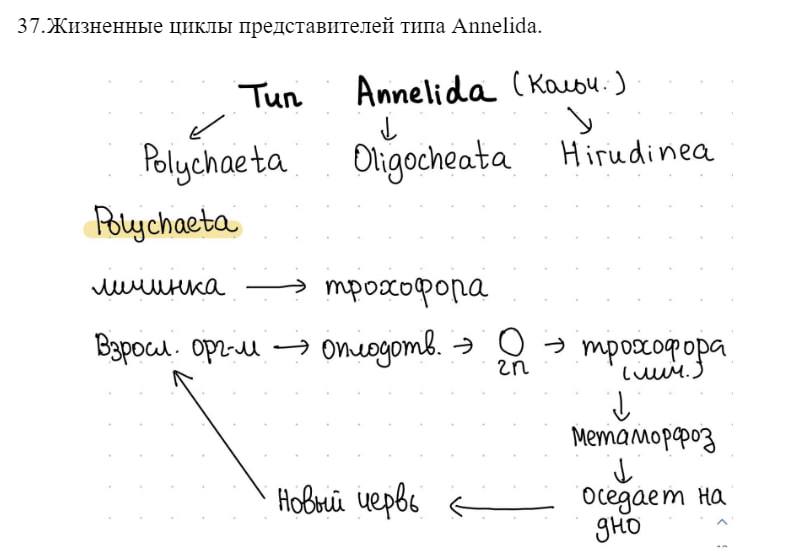 37.Жизненные циклы представителей типа Annelida.
Тип Annelida (Кольч.)
Polychaeta Oligocheata Hirudinea
Polychaeta
личинка → трохофора
Взросл. орг-м → оплодотв. → 2n → трохофора
(лич.)
метаморфоз
Новый червь ← оседает на
дно